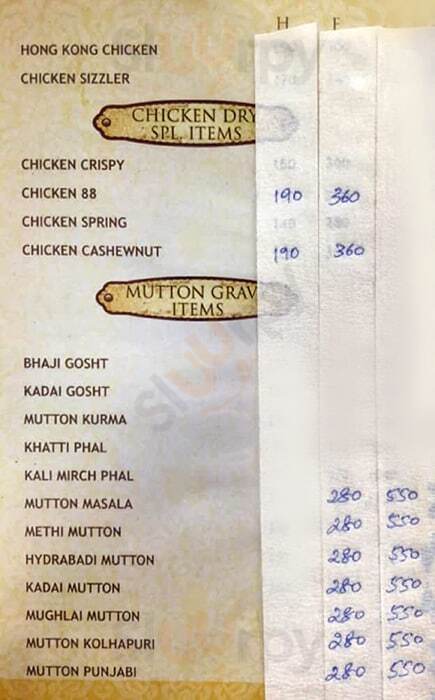 H F
HONG KONG CHICKEN
CHICKEN SIZZLER
CHICKEN DRY
SPL. ITEMS
CHICKEN CRISPY
CHICKEN 88 190 360
CHICKEN SPRING
CHICKEN CASHEWNUT 190 360
MUTTON GRAV
ITEMS
BHAJI GOSHT
KADAI GOSHT
MUTTON KURMA
KHATTI PHAL
KALI MIRCH PHAL
MUTTON MASALA 280 550
METHI MUTTON 280 550
HYDRABADI MUTTON 280 550
KADAI MUTTON 280 550
MUGHLAI MUTTON 280 550
MUTTON KOLHAPURI 280 550
MUTTON PUNJABI 280 550